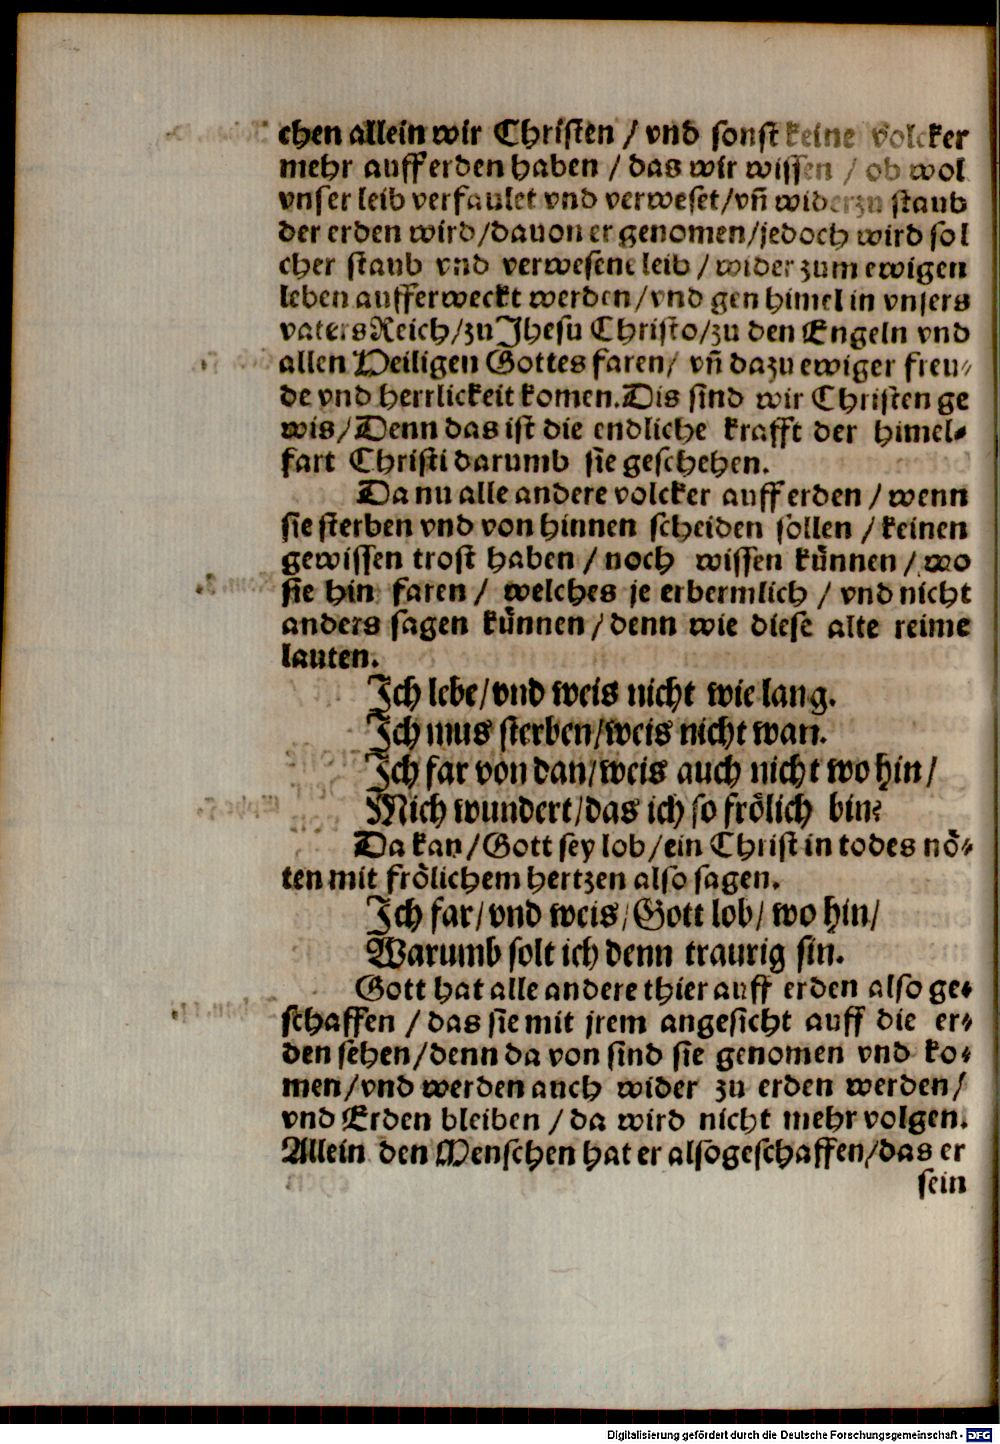 chen allein wir Christen / vnd sonst keine volcker
mehr auff erden haben / das wir wissen / ob wol
vnser leib verfaulet vnd verweset/vn̄ wider zu staub
der erden wird/dauon er genomen/jedoch wird sol
cher staub vnd verwesene leib / wider zum ewigen
leben aufferweckt werden/vnd gen himel in vnsers
vaters Reich/zu Jhesu Christo/zu den Engeln vnd
allen Heiligen Gottes faren/ vn̄ da zu ewiger freu⸗
de vnd herrlickeit komen. Dis sind wir Christen ge
wis/Denn das ist die endliche krafft der himel⸗
fart Christi darumb sie geschehen.
Da nu alle andere volcker auff erden / wenn
sie sterben vnd von hinnen scheiden sollen / keinen
gewissen trost haben / noch wissen kuͤnnen / wo
sie hin faren / welches je erbermlich / vnd nicht
anders sagen kuͤnnen / denn wie diese alte reime
lauten.
Ich lebe/vnd weis nicht wie lang.
Ich mus sterben/weis nicht wan.
Ich far von dan/weis auch nicht wo hin/
Mich wundert/das ich so froͤlich bin?
Da kan/Gott sey lob/ein Christ in todes noͤ⸗
ten mit froͤlichem hertzen also sagen.
Ich far/vnd weis/Gott lob/ wo hin/
Warumb solt ich denn traurig sin.
Gott hat alle andere thier auff erden also ge⸗
schaffen / das sie mit jrem angesicht auff die er⸗
den sehen/denn da von sind sie genomen vnd ko⸗
men/vnd werden auch wider zu erden werden/
vnd Erden bleiben / da wird nicht mehr volgen.
Allein den Menschen hat er also geschaffen/das er
sein
Digitalisierung gefördert durch die Deutsche Forschungsgemeinschaft - DFG